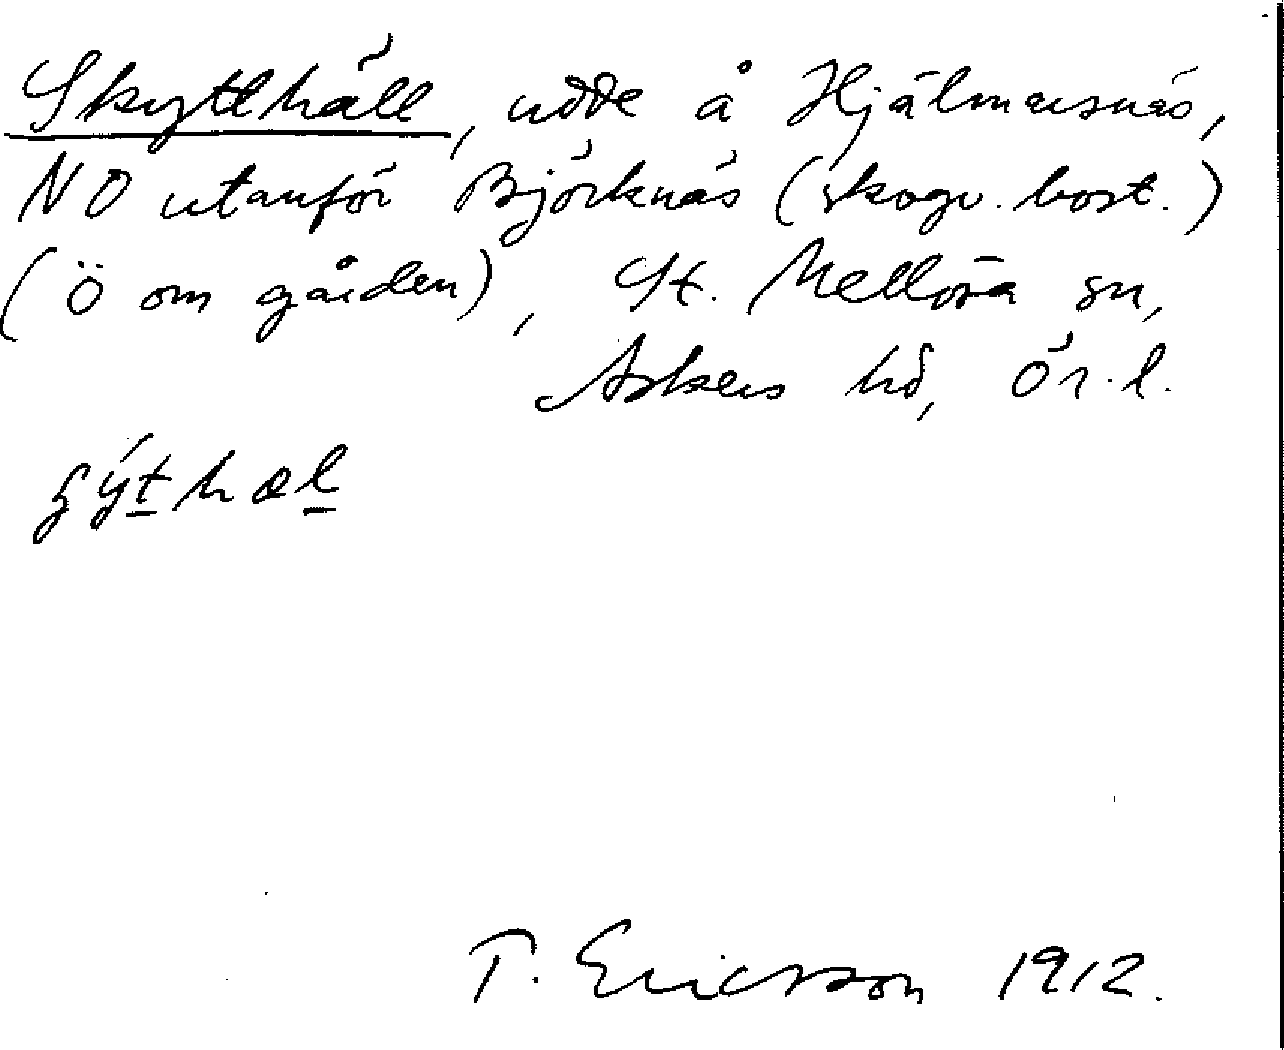 Skytthäll, udde å Hjälmarsnäs,
NO utanför Björknäs (skogv. bost.)
(Ö om gården), St. Mellösa sn,
Askers hd, Ör. l.
T. Ericsson 1912.